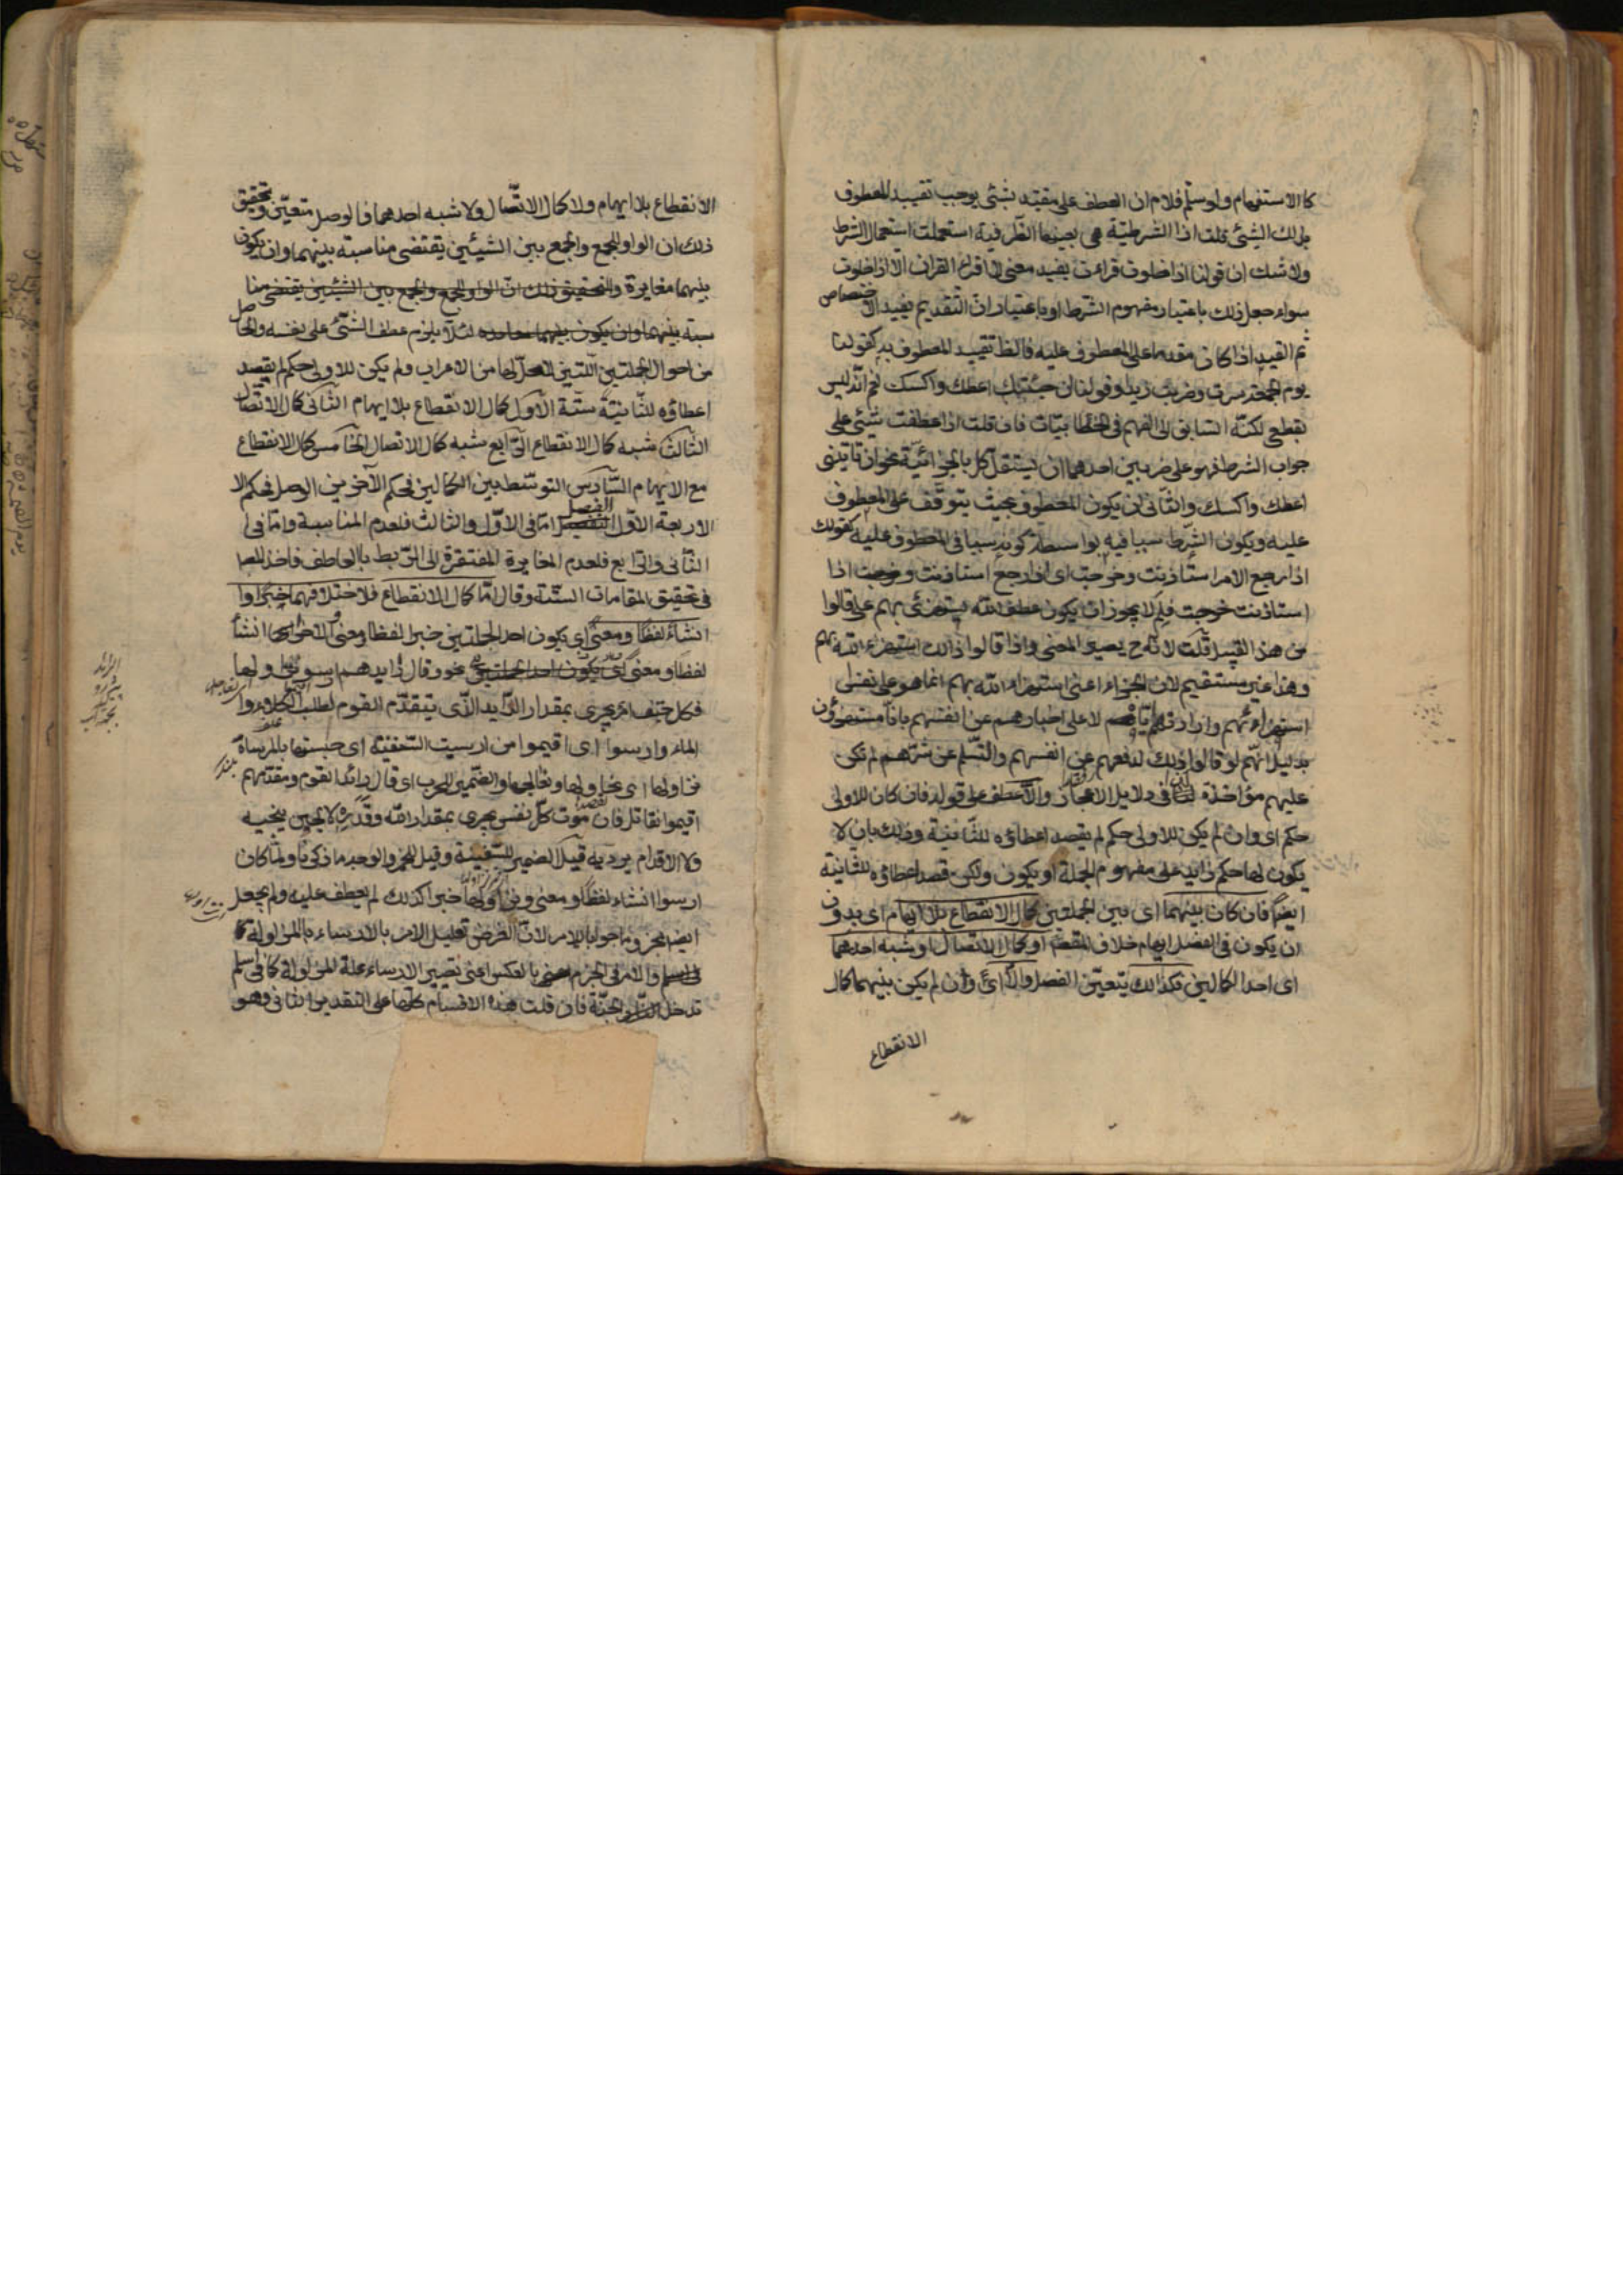 كالاستفهام ولو سلّم فلا م ان العطف على مقيّد بشئ يوجب تقييد المعطوف
بذلك الشئ قلت اذا الشرطيّة هي بعينها الظّرفية استعملت استعمال الشرط
ولا شك ان قولنا اذا خلوت قراءت يفيد معنى لا اقراء القران الا اذا خلوت
سواء جعل ذلك باعتبار مفهوم الشّرط او باعتبار انّ التّقديم يفيد الاختصاص
ثم القيد اذا كان مقدما على المعطوف عليه فالظ تقييد المعطوف به كقولنا
يوم الجمعة سرت وضربت زيدا وقولنا ان جئتنى اعطك واكسك نعم انّه ليس
بقطعى لكنّه السّابق الى الفهم في الخطابيّات فان قلت اذا عطفت شئ على
جواب الشرط فهو على ضربين احدهما ان يستقلّ كل بالجزائيّة نحو ان تاتينى
اعطك واكسك والثّانى ان يكون المعطوف بحيث يتوقّف على المعطوف
عليه ويكون الشّرط سببا فيه بواسطة كونه سببا فى المعطوف عليه كقولك
اذا رجع الامير استأذنت وخرجت اى اذا رجع استاذنت وخرجت اذا
استاذنت خرجت فلم لا يجوز ان يكون عطف اللّه يستهزئ بهم على قالوا
من هذا القبيل قلت لانّه ح يصير المعنى واذا قالوا ذلك استهزء اللّه بهم
وهذا غير مستقيم لان الجزاء اعنى استهزاء اللّه بهم انما هو على نفس
استهزائهم وارادتهم ايّاه لا على اخبارهم عن انفسهم بانّا مستهزؤن
بدليل انّهم لو قالوا ذلك لدفعهم عن انفسهم والتّسلم عن شرّهم لم تكن
عليهم مؤاخذة كذا فى دلايل الاعجاز والّا عطف على قوله فان كان للاولى
حكم اى وان لم يكن للاولى حكم لم يقصد اعطاؤه للثّانية وذلك بان لا
يكون لها حكم زايد على مفهوم الجملة او يكون ولكن قصد اعطاؤه للثانية
ايضًا فان كان بينهما اى بين الجملتين كمال الانقطاع بلا ايهام اى بدون
ان يكون فى الفصل ايهام خلاف المقصود او كمال الاتصال او شبه احدهما
اى احد الكمالين فكذلك يتعيّن الفصل والّا اى وان لم يكن بينهما كمال
الانقطاع
الانقطاع بلا ايهام ولا كمال الاتّصال ولا شبه احدهما فالوصل متعيّن وتحقيق
ذلك ان الواو للجمع والجمع بين الشيئين يقتضى مناسبة بينهما وان يكون
بينهما مغايرة والتحقيق ذلك انّ الواو للجمع والجمع بين الشّيئين يقتضى منا
سبة بينهما وان يكون بينهما مغايرة لئلّا يلزم عطف الشّئ على نفسه والحاصل
من احوال الجملتين اللّتين لا محلّ لهما من الاعراب ولم يكن للاولى حكم لم يقصد
اعطاؤه للثّانيّة ستّة الاوّل كمال الانقطاع بلا ايهام الثّانى كمال الاتّصال
الثّالث شبه كمال الانقطاع الرّابع شبه كمال الاتصال الخامس كمال الانقطاع
مع الايهام السّادس التوسّط بين الكمالين فحكم الآخرين الوصل وحكم الا
الاربعة الاوّل الفصل امّا فى الاوّل والثالث فلعدم المناسبة وامّا فى
الثّانى والرّابع فلعدم المغايرة المفتقرة الى الرّبط بالعاطف فاخذ المص
فى تحقيق المقامات الستّة وقال امّا كمال الانقطاع فلاختلافهما خبرًا وا
انشاءً لفظًا ومعنًى اى يكون احد الجملتين خبرا لفظا ومعنًى والاخرى انشأ
لفظا ومعنى نحو وقال رايدهم ارسوا نزاولها
فكل حتف امرئ يجرى بمقدار الرّايد الّذى يتقدّم القوم لطلب الكلاء و
الماء وارسوا اى اقيموا من ارسيت السّفينة اى حبستها بالمرساة
نزاولها اى نحاولها ونعالجها والضّمير للحرب اى قال رائد القوم ومقدّمهم
اقيموا نقاتل فان موت كلّ نفس يجرى بمقدار اللّه وقدره لا الجبن ينجيه
ولا الاقدام يرديه قيل الضمير للسّفينة وقيل للخمر والوجه ما ذكرنا ولمّا كان
ارسوا انشاء لفظًا ومعنى ونزاولها خبرا كذلك لم يعطف عليه ولم يجعل
ايضا مجزوما جوابا للامر لانّ الغرض تعليل الامر بالارساء بالمزاولة
والامر فى الجزم بالعكس اعنى يصير الارساء علة للمزاولة كما فى اسلم
تدخل الجنّة فان قلت هذه الاقسام كلّها على التقدير الثانى وهو